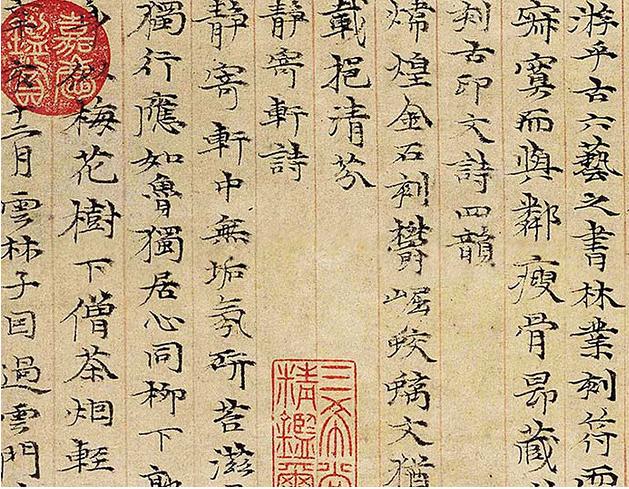 游乎古六藝之書林業刻符而
寂寞而與鄰瘦骨昂藏
刻古印文詩四韻
煒煌金石刻欝崛蛟螭文猶
載挹清芬
靜寄軒詩
靜寄軒中無垢氛研苔滋
獨行應如魯獨居心同柳下
梅花樹下僧茶烟輕
十二月雲林子因過雲門
嘉慶鑑賞
三希堂
精鑑璽